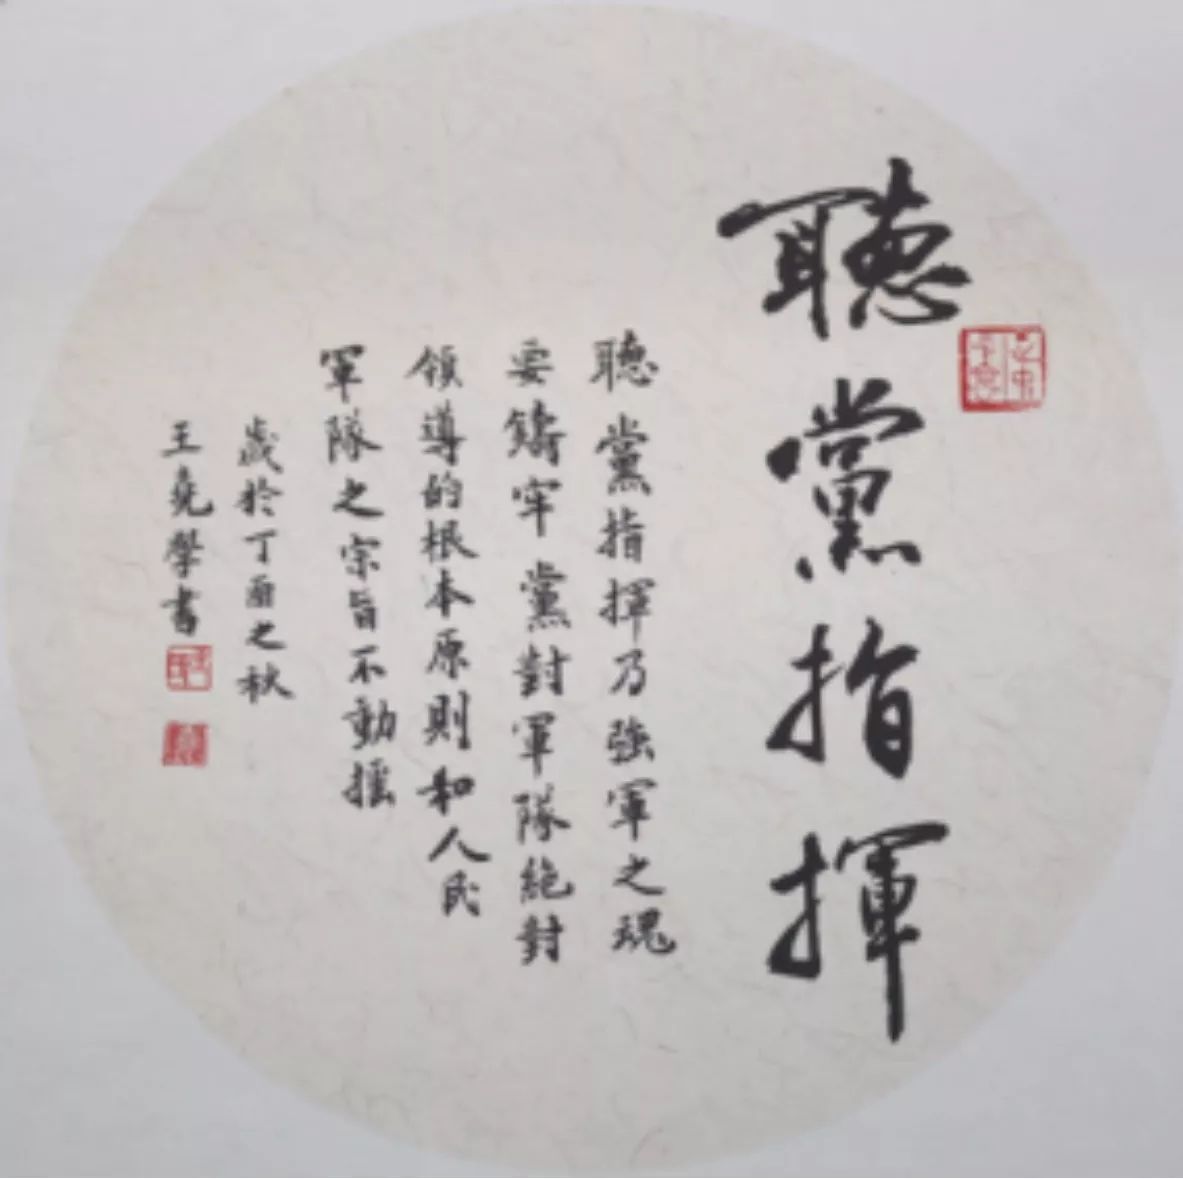 聽黨指揮
聽黨指揮乃強軍之魂
要鑄牢黨對軍隊絶對
領導的根本原則和人民
軍隊之宗旨不動摇
歲於丁酉之秋
王堯學書